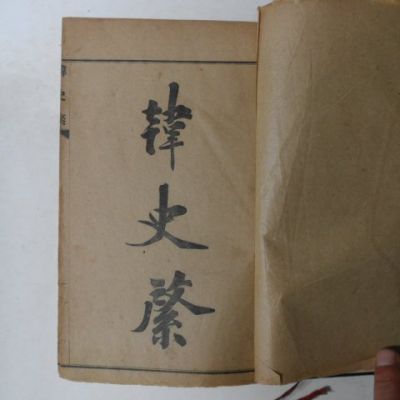 韓史綮
韓史綮